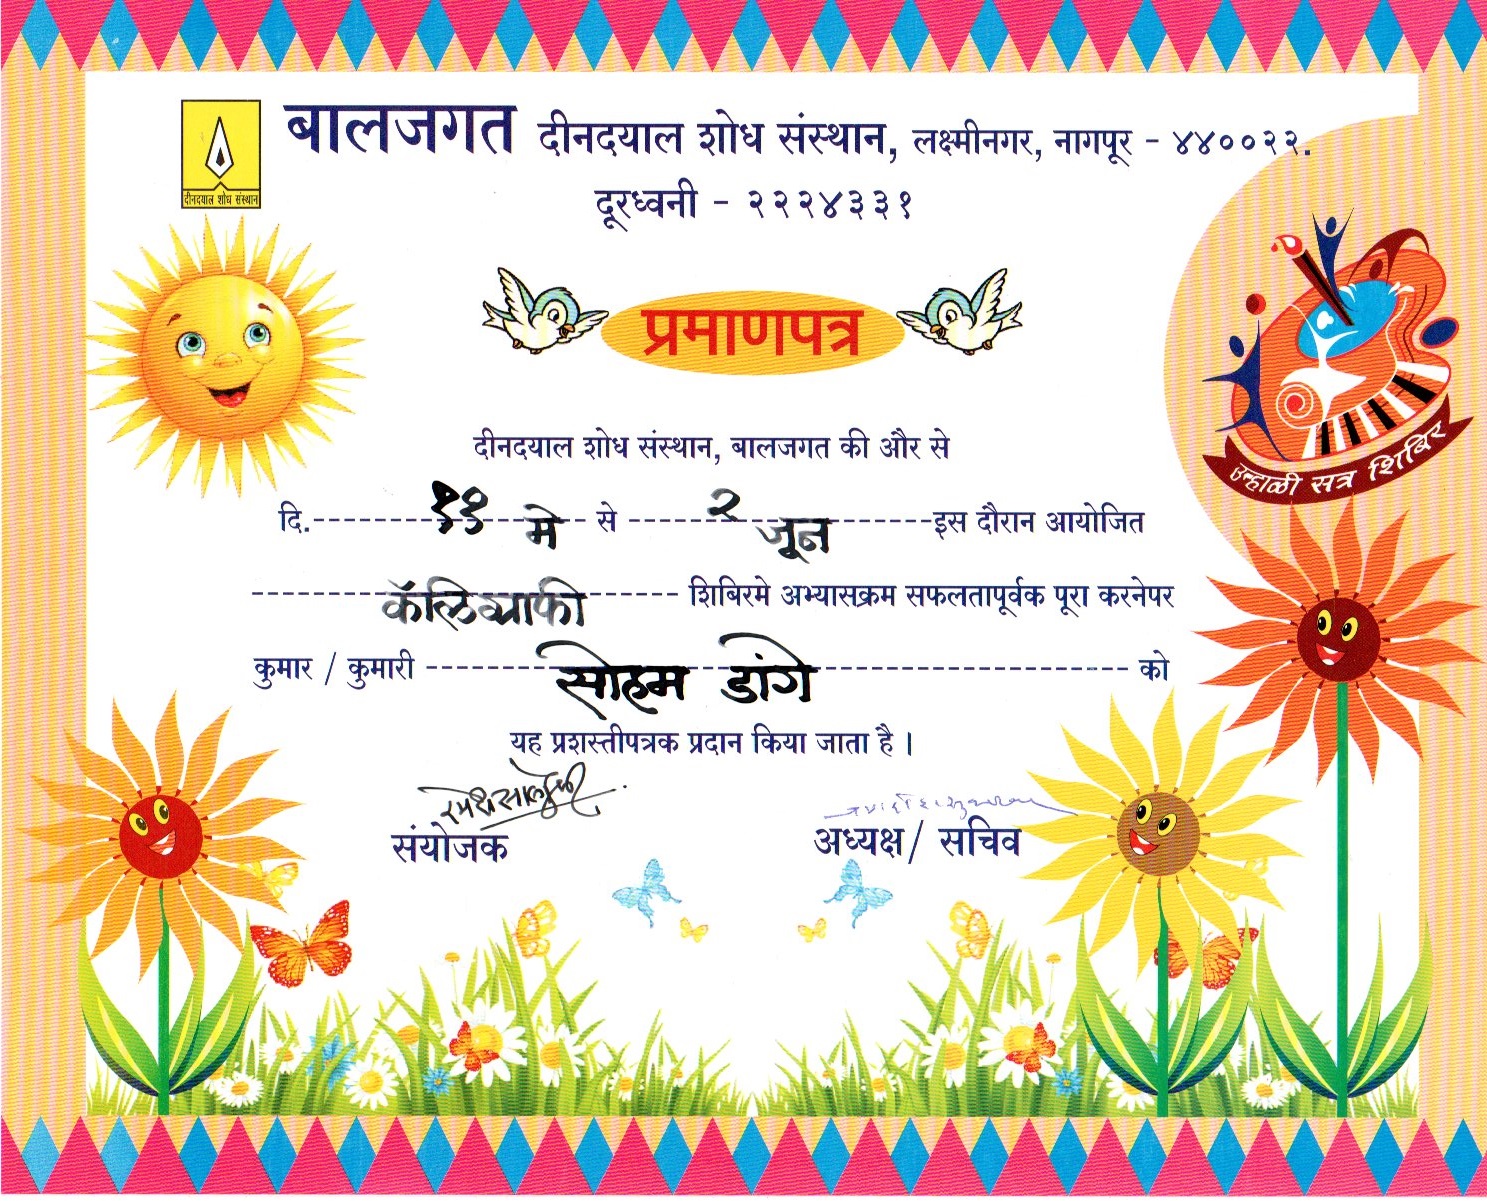 बालजगत दीनदयाल शोध संस्थान, लक्ष्मीनगर, नागपूर - ४४००२२.
दीनदयाल शोध संस्थान
दूरध्वनी - २२२४३३१
प्रमाणपत्र
उन्हाळी सत्र शिबिर
दीनदयाल शोध संस्थान, बालजगत की और से
दि. ११ मे से २ जून इस दौरान आयोजित
कॅलिग्राफी शिबिरमे अभ्यासक्रम सफलतापूर्वक पूरा करनेपर
कुमार / कुमारी सोहम डांगे को
यह प्रशस्तीपत्रक प्रदान किया जाता है ।
संयोजक
अध्यक्ष/ सचिव